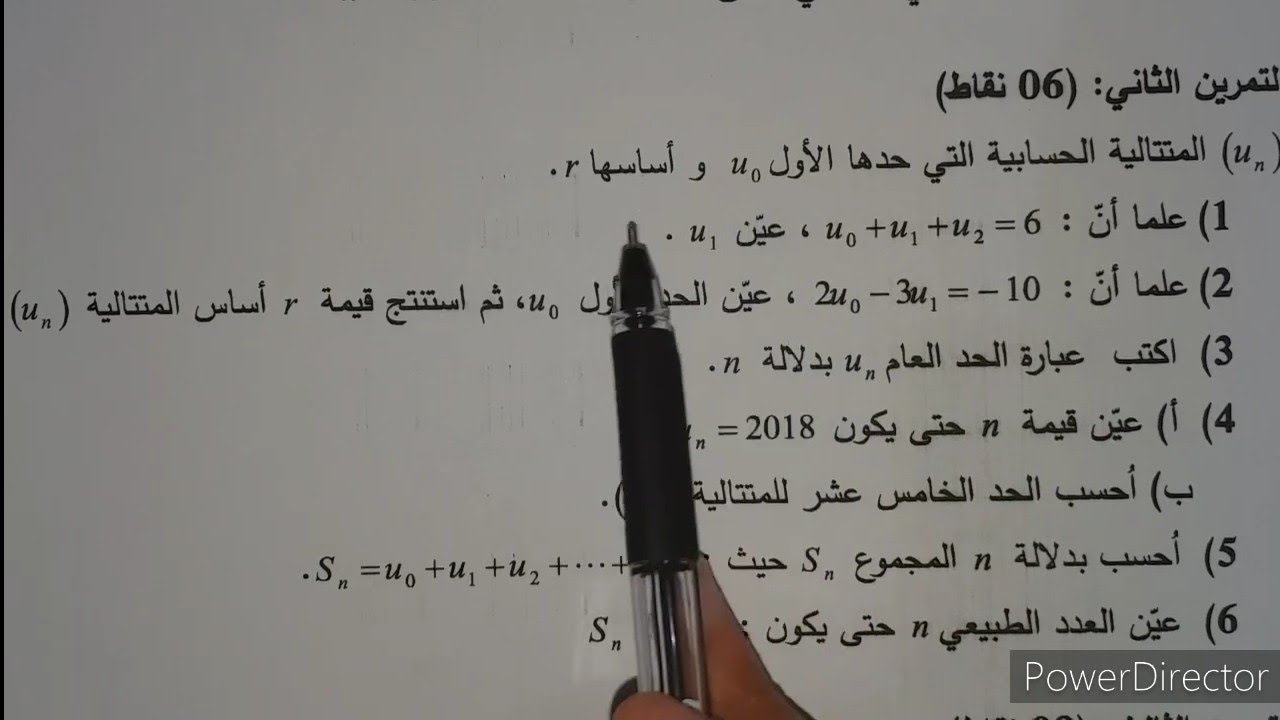 لتمرين الثاني: (06 نقاط)
(u_n) المتتالية الحسابية التي حدها الأول u_0 و أساسها r .
1) علما أنّ : u_0 + u_1 + u_2 = 6 ، عيّن u_1 .
2) علما أنّ : 2u_0 − 3u_1 = −10 ، عيّن الحد أول u_0، ثم استنتج قيمة r أساس المتتالية (u_n)
3) اكتب عبارة الحد العام u_n بدلالة n .
4) أ) عيّن قيمة n حتى يكون n = 2018
ب) أحسب الحد الخامس عشر للمتتالية ) .
5) أحسب بدلالة n المجموع S_n حيث S_n = u_0 + u_1 + u_2 + ⋯ + .
6) عيّن العدد الطبيعي n حتى يكون : S_n
PowerDirector